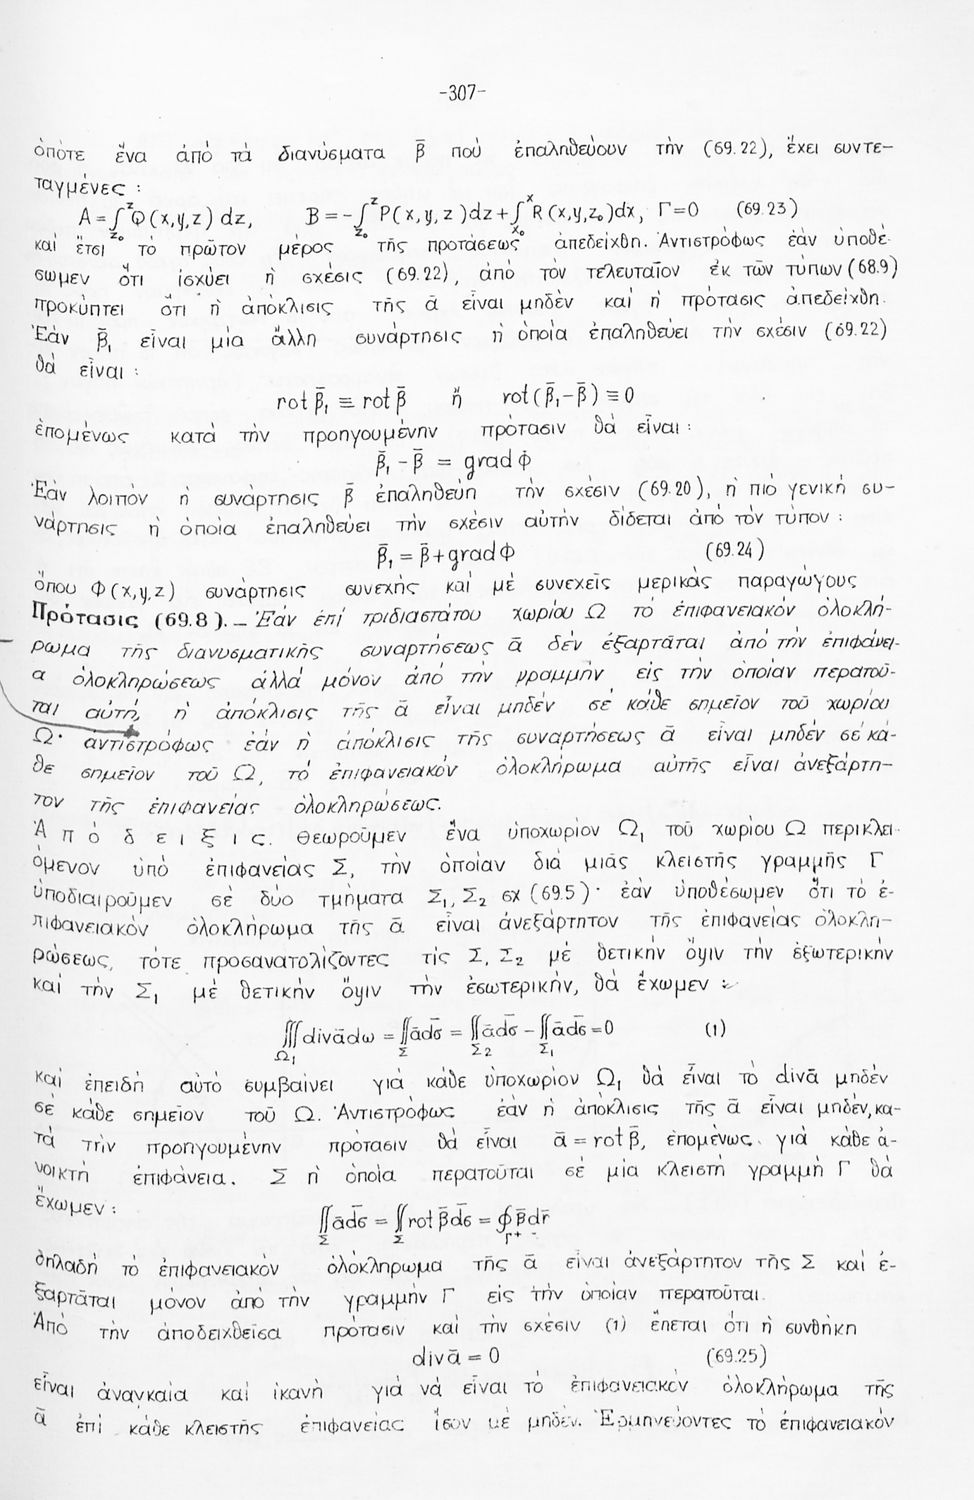 -307-
ὁπότε ἕνα ἀπό τά διανύσματα β̄ πού ἐπαληθεύουν τήν (69.22), ἔχει συντε-
ταγμένες :
A = ∫_{z₀}^{z} Q(x,y,z) dz, B = -∫_{z₀}^{z} P(x,y,z)dz + ∫_{x₀}^{x} R(x,y,z₀)dx, Γ=0 (69.23)
καί ἔτσι τό πρῶτον μέρος τῆς προτάσεως ἀπεδείχθη. Ἀντιστρόφως ἐάν ὑποθέ-
σωμεν ὅτι ἰσχύει ἡ σχέσις (69.22), ἀπό τόν τελευταῖον ἐκ τῶν τύπων (68.9)
προκύπτει ὅτι ἡ ἀπόκλισις τῆς ᾱ εἶναι μηδέν καί ἡ πρότασις ἀπεδείχθη.
Ἐάν β̄₁ εἶναι μία ἄλλη συνάρτησις ἡ ὁποία ἐπαληθεύει τήν σχέσιν (69.22)
θά εἶναι :
rot β̄₁ ≡ rot β̄ ἤ rot(β̄₁-β̄) ≡ 0
ἑπομένως κατά τήν προηγουμένην πρότασιν θά εἶναι :
β̄₁ - β̄ = grad Φ
Ἐάν λοιπόν ἡ συνάρτησις β̄ ἐπαληθεύῃ τήν σχέσιν (69.20), ἡ πιό γενική συ-
νάρτησις ἡ ὁποία ἐπαληθεύει τήν σχέσιν αὐτήν δίδεται ἀπό τόν τύπον :
β̄₁ = β̄ + grad Φ (69.24)
ὅπου Φ(x,y,z) συνάρτησις συνεχής καί μέ συνεχεῖς μερικάς παραγώγους
Πρότασις (69.8).— Ἐάν ἐπί τριδιαστάτου χωρίου Ω τό ἐπιφανειακόν ὁλοκλή-
ρωμα τῆς διανυσματικῆς συναρτήσεως ᾱ δέν ἐξαρτᾶται ἀπό τήν ἐπιφάνει-
α ὁλοκληρώσεως ἀλλά μόνον ἀπό τήν γραμμήν εἰς τήν ὁποίαν περατοῦ-
ται αὐτή, ἡ ἀπόκλισις τῆς ᾱ εἶναι μηδέν σέ κάθε σημεῖον τοῦ χωρίου
Ω· ἀντιστρόφως ἐάν ἡ ἀπόκλισις τῆς συναρτήσεως ᾱ εἶναι μηδέν σέ κά-
θε σημεῖον τοῦ Ω, τό ἐπιφανειακόν ὁλοκλήρωμα αὐτῆς εἶναι ἀνεξάρτη-
τον τῆς ἐπιφανείας ὁλοκληρώσεως.
Ἀ π ό δ ε ι ξ ι ς. Θεωροῦμεν ἕνα ὑποχωρίον Ω₁ τοῦ χωρίου Ω περικλει-
όμενον ὑπό ἐπιφανείας Σ, τήν ὁποίαν διά μιᾶς κλειστῆς γραμμῆς Γ
ὑποδιαιροῦμεν σέ δύο τμήματα Σ₁, Σ₂ σχ (69.5)· ἐάν ὑποθέσωμεν ὅτι τό ἐ-
πιφανειακόν ὁλοκλήρωμα τῆς ᾱ εἶναι ἀνεξάρτητον τῆς ἐπιφανείας ὁλοκλη-
ρώσεως, τότε προσανατολίζοντες τίς Σ, Σ₂ μέ θετικήν ὄψιν τήν ἐξωτερικήν
καί τήν Σ₁ μέ θετικήν ὄψιν τήν ἐσωτερικήν, θά ἔχωμεν :
∭_{Ω₁} divᾱdω = ∬_{Σ} ᾱdσ̄ = ∬_{Σ₂} ᾱdσ̄ - ∬_{Σ₁} ᾱdσ̄ = 0 (1)
καί ἐπειδή αὐτό συμβαίνει γιά κάθε ὑποχωρίον Ω₁ θά εἶναι τό divᾱ μηδέν
σέ κάθε σημεῖον τοῦ Ω. Ἀντιστρόφως ἐάν ἡ ἀπόκλισις τῆς ᾱ εἶναι μηδέν, κα-
τά τήν προηγουμένην πρότασιν θά εἶναι ᾱ = rot β̄, ἑπομένως γιά κάθε ἀ-
νοικτή ἐπιφάνεια. Σ ἡ ὁποία περατοῦται σέ μία κλειστή γραμμή Γ θά
ἔχωμεν :
∬_{Σ} ᾱdσ̄ = ∬_{Σ} rot β̄dσ̄ = ∮_{Γ⁺} β̄dr̄
δηλαδή τό ἐπιφανειακόν ὁλοκλήρωμα τῆς ᾱ εἶναι ἀνεξάρτητον τῆς Σ καί ἐ-
ξαρτᾶται μόνον ἀπό τήν γραμμήν Γ εἰς τήν ὁποίαν περατοῦται.
Ἀπό τήν ἀποδειχθεῖσα πρότασιν καί τήν σχέσιν (1) ἕπεται ὅτι ἡ συνθήκη
divᾱ = 0 (69.25)
εἶναι ἀναγκαία καί ἱκανή γιά νά εἶναι τό ἐπιφανειακόν ὁλοκλήρωμα τῆς
ᾱ ἐπί κάθε κλειστῆς ἐπιφανείας ἴσον μέ μηδέν. Ἑρμηνεύοντες τό ἐπιφανειακόν